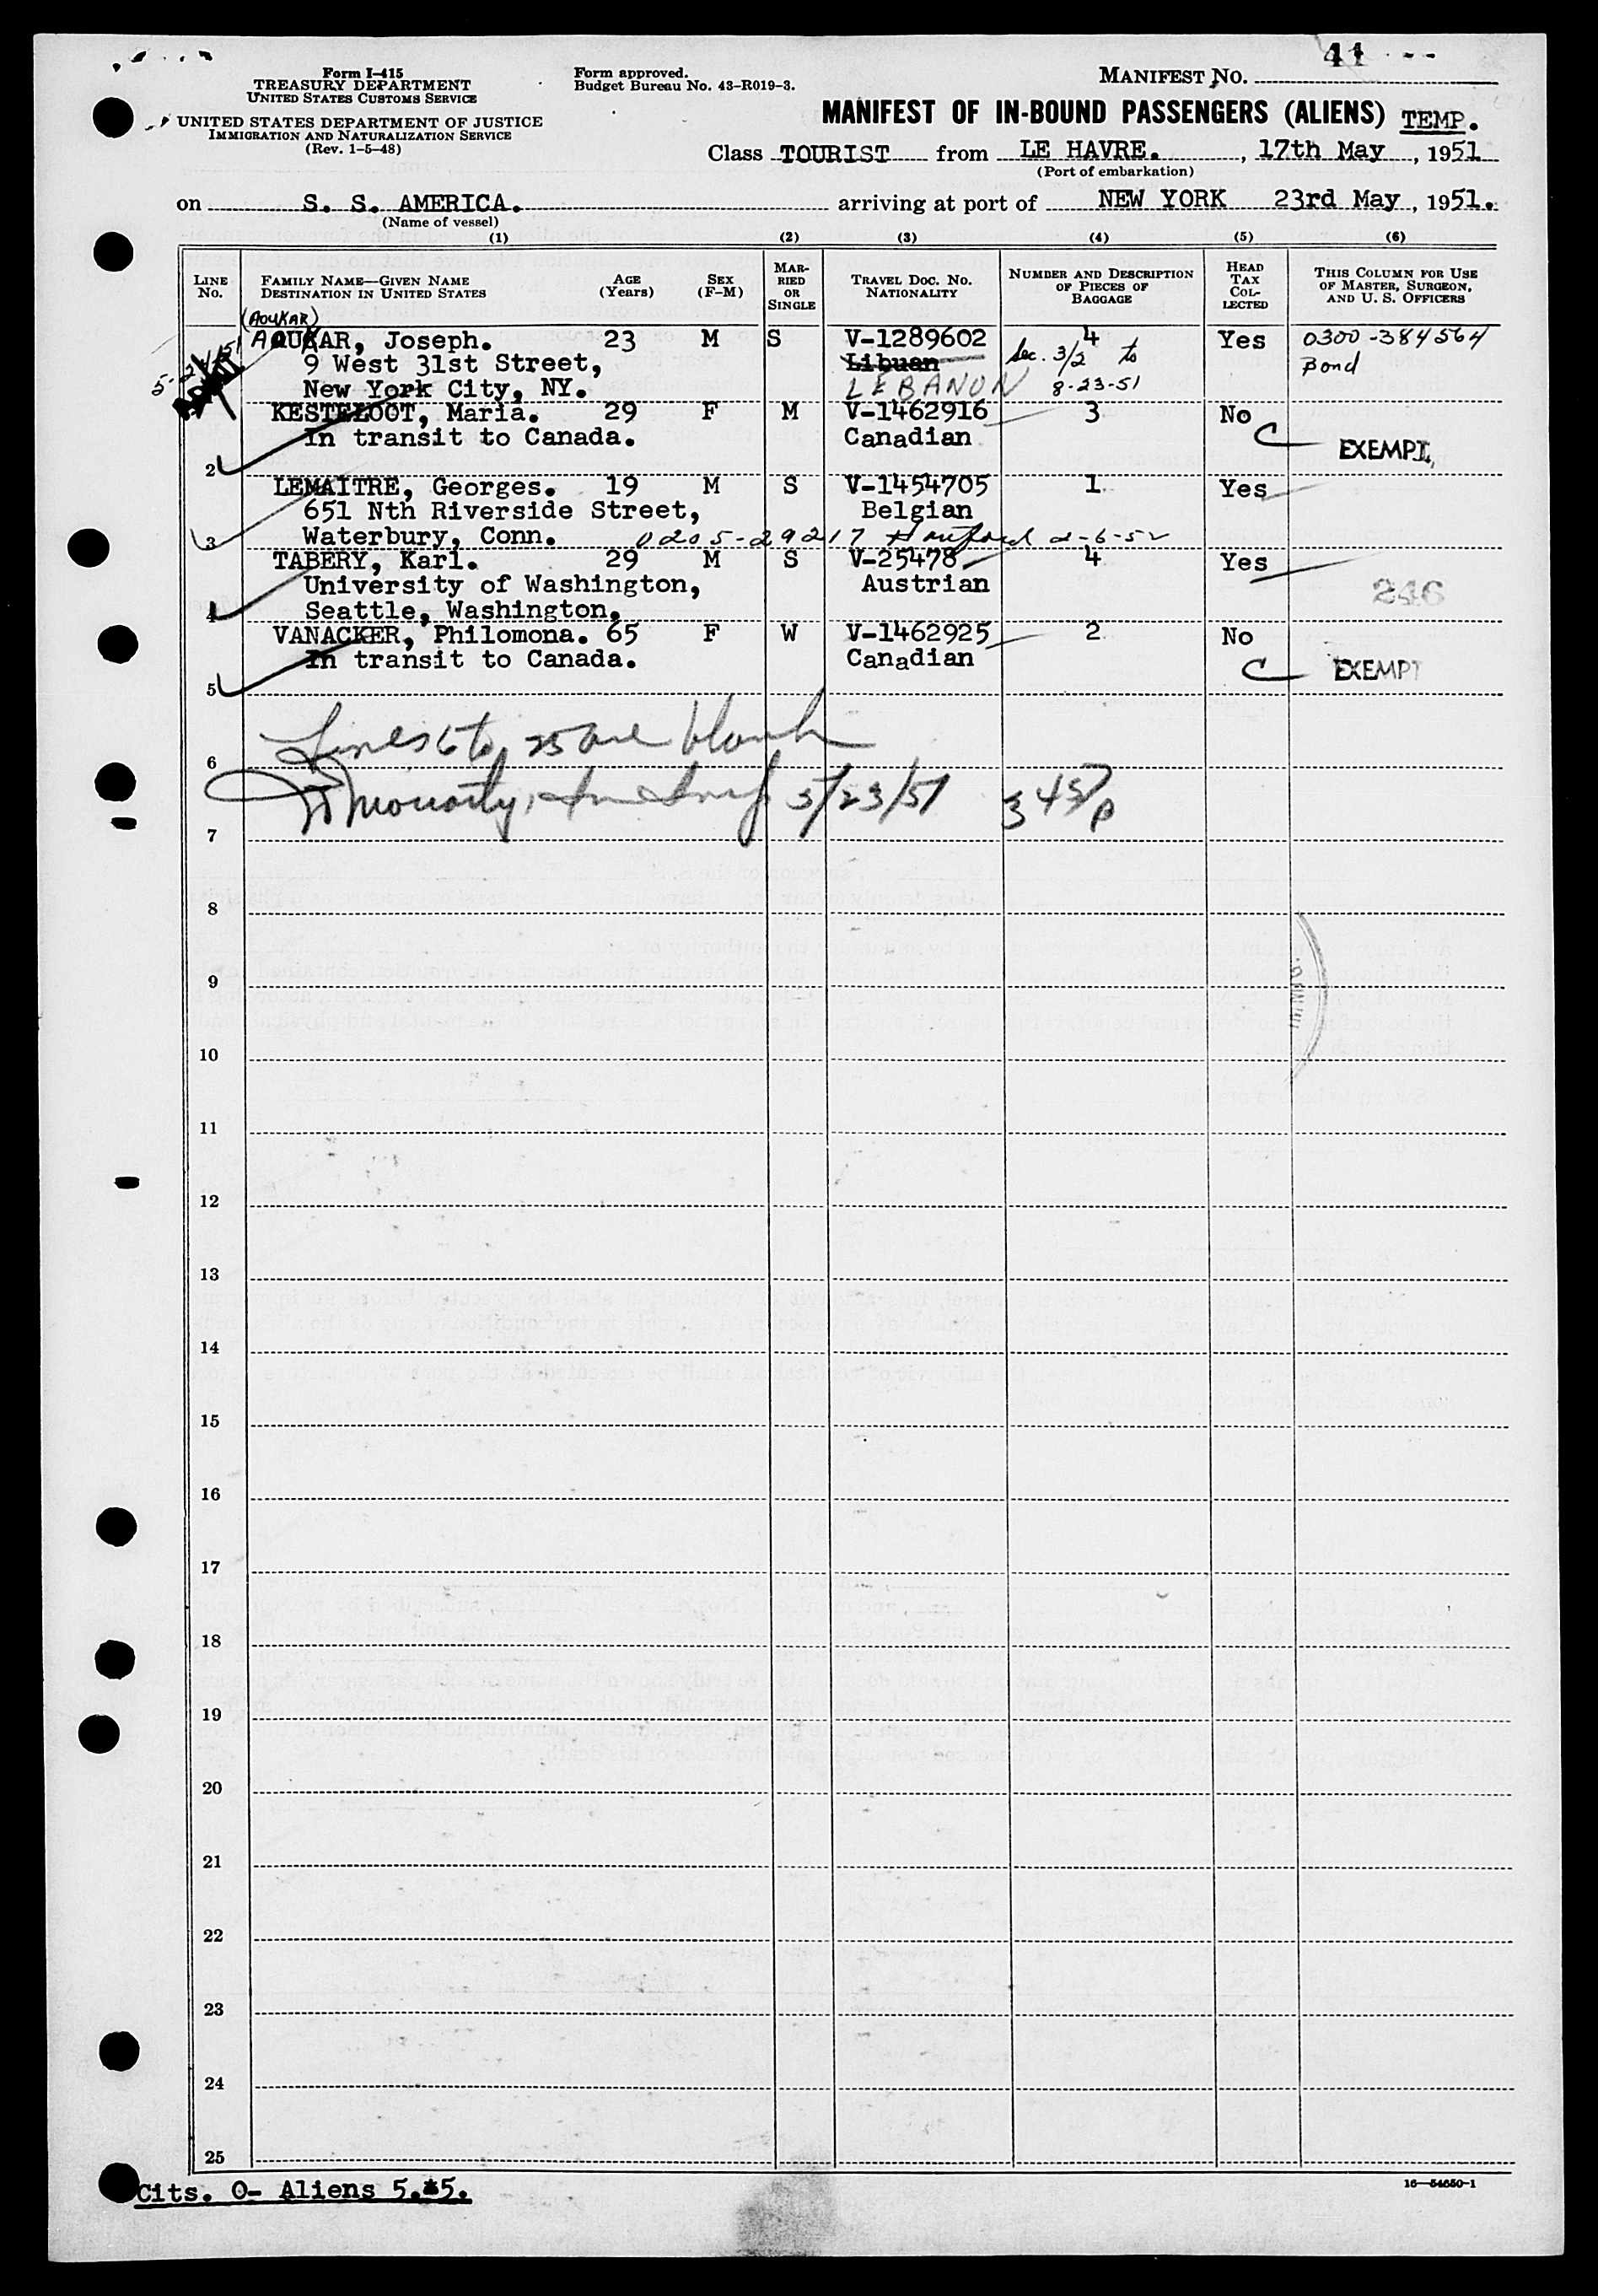 41 --
Form I-415
TREASURY DEPARTMENT
UNITED STATES CUSTOMS SERVICE
UNITED STATES DEPARTMENT OF JUSTICE
IMMIGRATION AND NATURALIZATION SERVICE
(Rev. 1-5-48)
Form approved.
Budget Bureau No. 43-R019-3.
MANIFEST NO.
MANIFEST OF IN-BOUND PASSENGERS (ALIENS) TEMP.
Class TOURIST from LE HAVRE. , 17th May , 1951
(Port of embarkation)
on S. S. AMERICA. arriving at port of NEW YORK 23rd May , 1951.
(Name of vessel)
(1) (2) (3) (4) (5) (6)
LINE No.
FAMILY NAME—GIVEN NAME
DESTINATION IN UNITED STATES
AGE (Years)
SEX (F-M)
MARRIED OR SINGLE
TRAVEL DOC. NO.
NATIONALITY
NUMBER AND DESCRIPTION OF PIECES OF BAGGAGE
HEAD TAX COLLECTED
THIS COLUMN FOR USE OF MASTER, SURGEON, AND U. S. OFFICERS
(AOUKAR)
AOUKAR, Joseph. 23 M S V-1289602 4 Yes 0300-384564
9 West 31st Street, Libuan Sec. 3/2 to Bond
New York City, NY. LEBANON 8-23-51
KESTELOOT, Maria. 29 F M V-1462916 3 No
In transit to Canada. Canadian C EXEMPT
2
LEMAITRE, Georges. 19 M S V-1454705 1 Yes
651 Nth Riverside Street, Belgian
3 Waterbury, Conn. 0205-29217 Hartford 2-6-52
TABERY, Karl. 29 M S V-25478 4 Yes
University of Washington, Austrian 246
4 Seattle, Washington.
VANACKER, Philomona. 65 F W V-1462925 2 No
In transit to Canada. Canadian C EXEMPT
5
Lines 6 to 25 are blank
6
Moriarty, Imm Insp 5/23/51 345p
7
8
9
10
11
12
13
14
15
16
17
18
19
20
21
22
23
24
25
Cits. 0- Aliens 5.*5.
16—54650-1